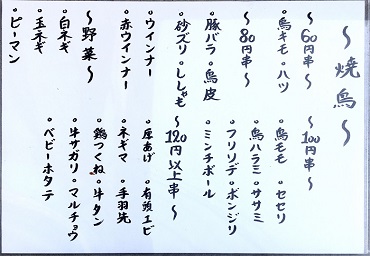 ～焼鳥～
～60円串～
・鳥キモ・ハツ
～80円串～
・豚バラ・鳥皮
・砂ズリ・ししゃも
・ウインナー
・赤ウインナー
～野菜～
・白ネギ
・玉ネギ
・ピーマン
～100円串～
・鳥モモ・セセリ
・鳥ハラミ・ササミ
・フリソデ・ボンジリ
・ミンチボール
～120円以上串～
・厚あげ・有頭エビ
・ネギマ・手羽先
・鶏つくね・牛タン
・牛サガリ・マルチョウ
・ベビーホタテ